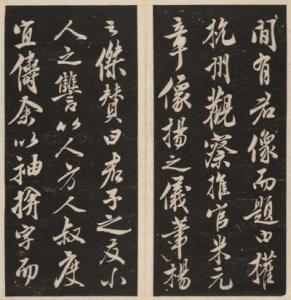 間有君像而題曰權
杭州觀察推官米元
章像揚之儀筆楊
之傑贊曰君子之友小
人之讐以人方人叔度
宜儔余以袖字而